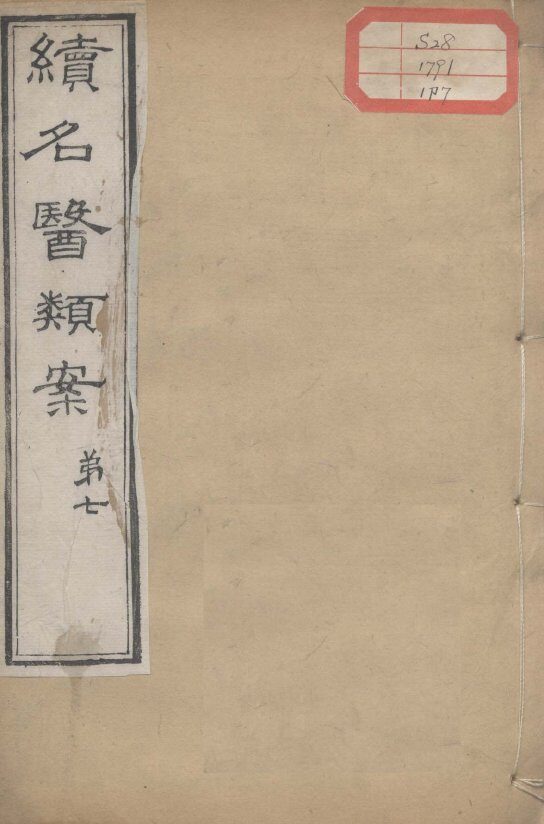 續名醫類案
第七
S28
1791
1P7